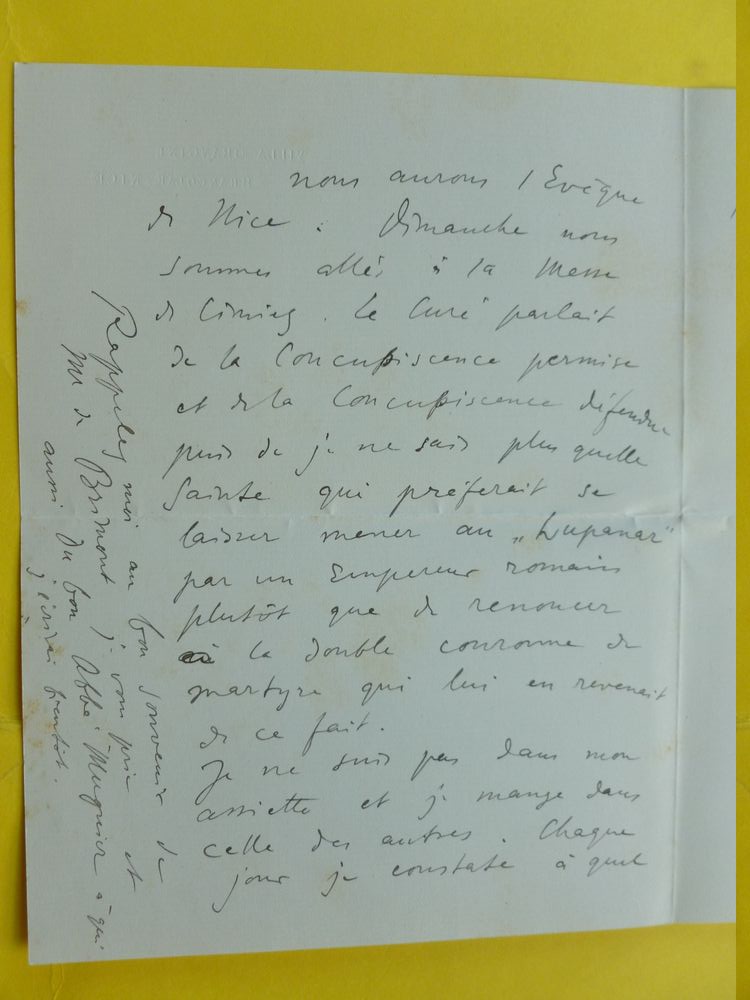 nous aurons l'Evêque
de Nice. Dimanche nous
sommes allés à la Messe
de Cimiez. Le Curé parlait
de la Concupiscence permise
et de la Concupiscence défendue
puis de je ne sais plus quelle
Sainte qui préférait se
laisser mener au „Lupanar"
par un Empereur romain
plutôt que de renoncer
à la double couronne de
martyre qui lui en revenait
de ce fait.
Je ne suis pas dans mon
assiette et je mange dans
celle des autres. Chaque
jour je constate à quel
Rappelez moi au bon souvenir de
Mr de Brimont je vous prie et
aussi du bon Abbé Mugnier à qui
j'écrirai bientôt.